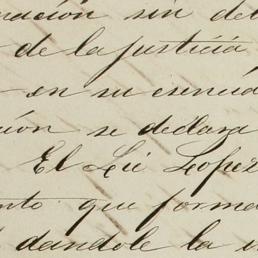 nación sin del
de la justicia
en su esencia
ción se declara
El Lic Lopez
ento que forma
dandole la in